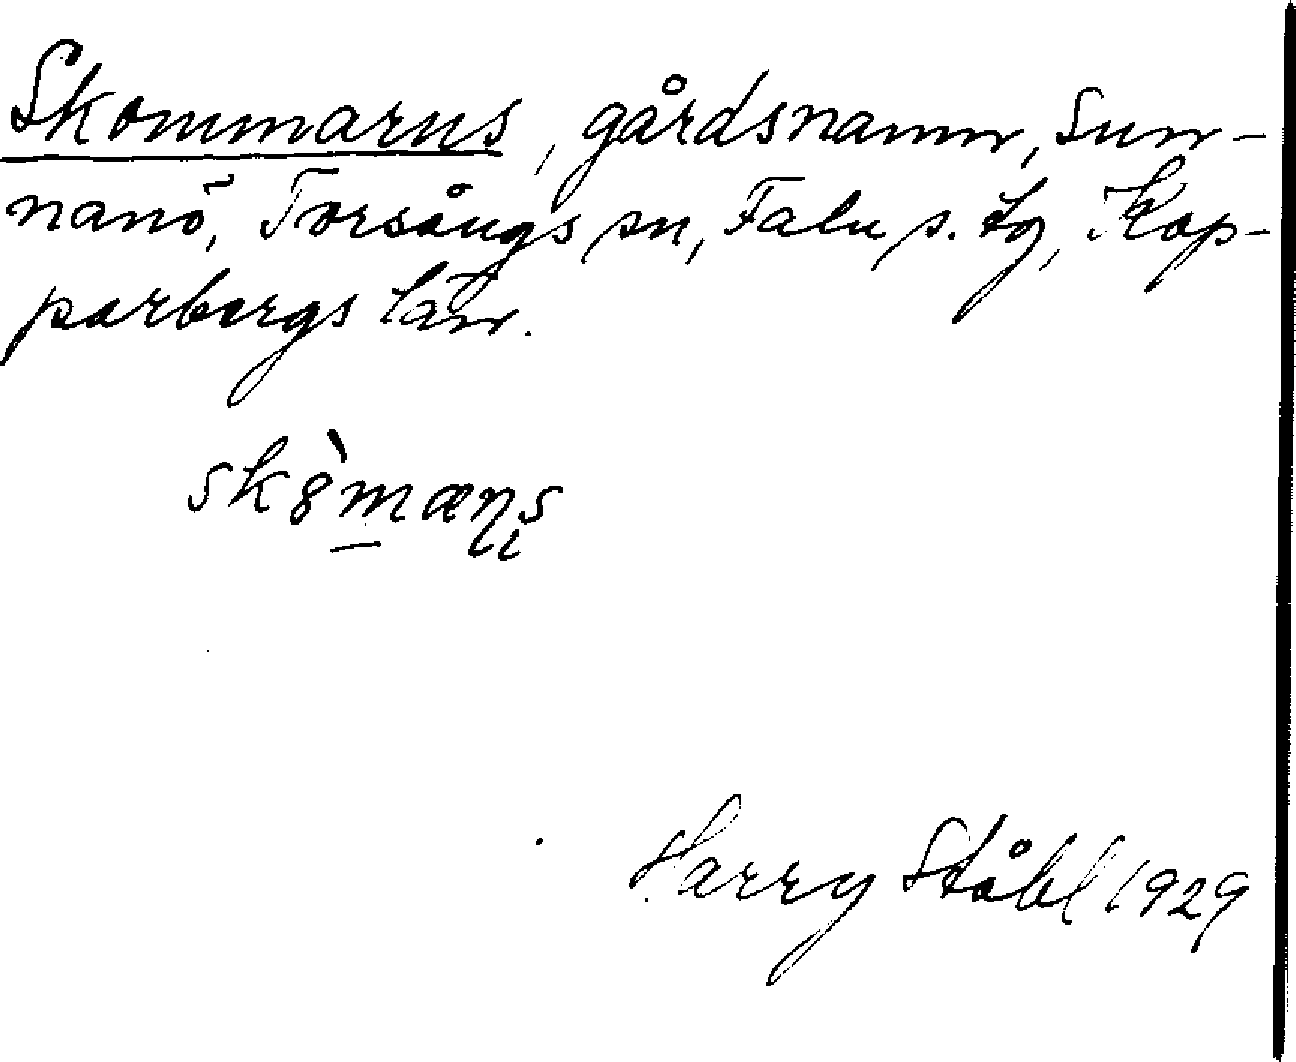 Skommarns, gårdsnamn, Sun-
nanö, Torsångs sn, Falu s. tg, Kop-
parbergs län.
sk8̀mæn̨s̨
Harry Ståhl 1929